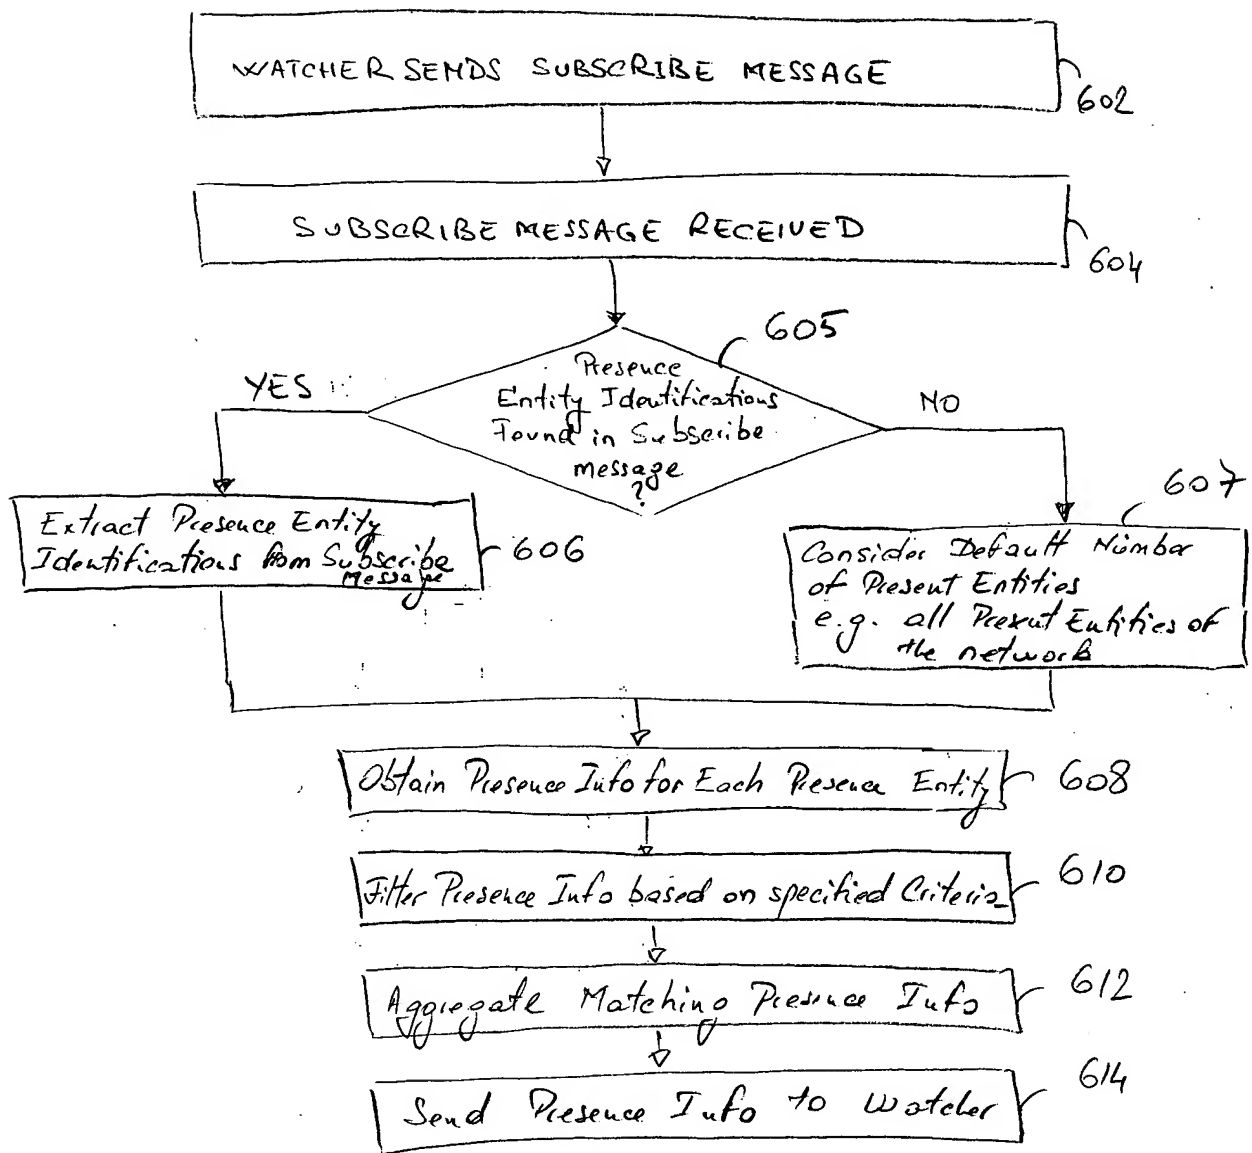 WATCHER SENDS SUBSCRIBE MESSAGE
602
SUBSCRIBE MESSAGE RECEIVED
604
605
Presence
Entity Identifications
Found in Subscribe
message
?
YES
NO
607
Extract Presence Entity
Identifications from Subscribe
Message
606
Consider Default Number
of Present Entities
e.g. all Present Entities of
the network
Obtain Presence Info for Each Presence Entity
608
Filter Presence Info based on specified Criteria
610
Aggregate Matching Presence Info
612
Send Presence Info to Watcher
614